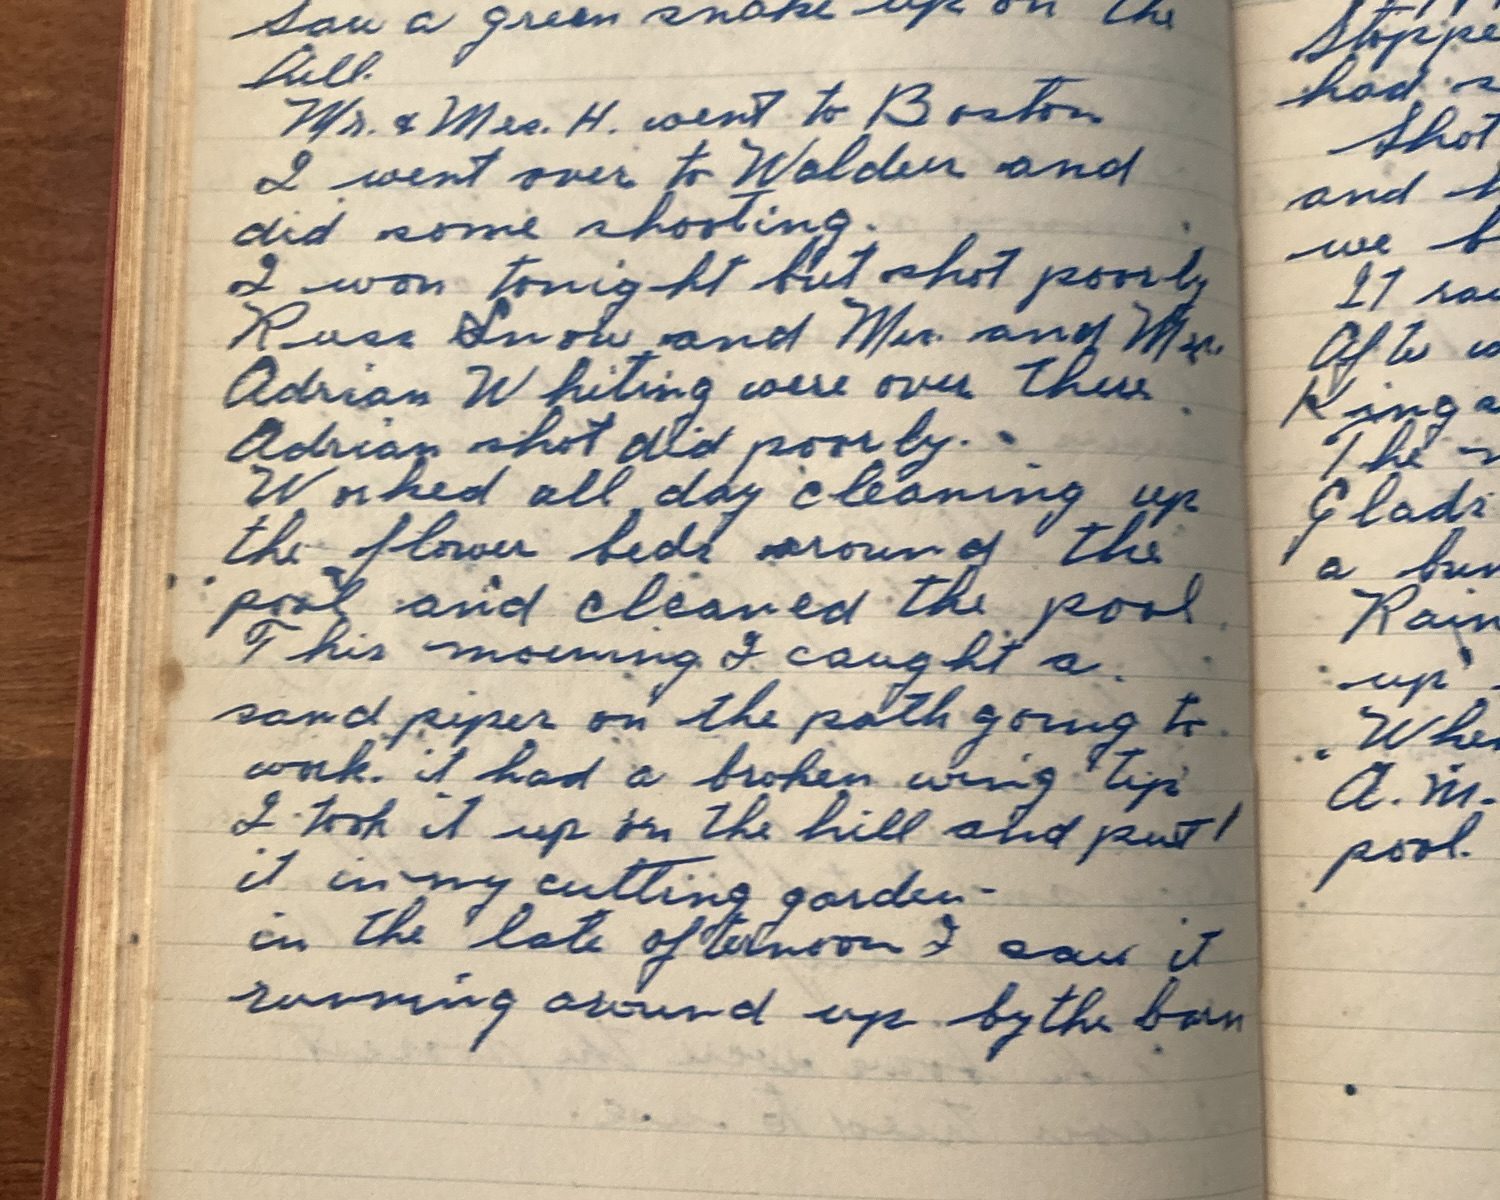 Saw a green snake up on the
hill.
Mr. & Mrs. H. went to Boston
I went over to Walden and
did some shooting.
I won tonight but shot poorly
Russ Snow and Mr. and Mrs.
Adrian Whiting were over there.
Adrian shot did poorly.
Worked all day cleaning up
the flower beds around the
pool and cleaned the pool.
This morning I caught a
sand piper on the path going to
work. it had a broken wing tip
I took it up on the hill and put
it in my cutting garden-
in the late afternoon I saw it
running around up by the barn
Stoppe
had s
Shot
and h
we b
It rai
After w
King a
The
Gladi
a bun
Rain
up
When
A.M.
pool.